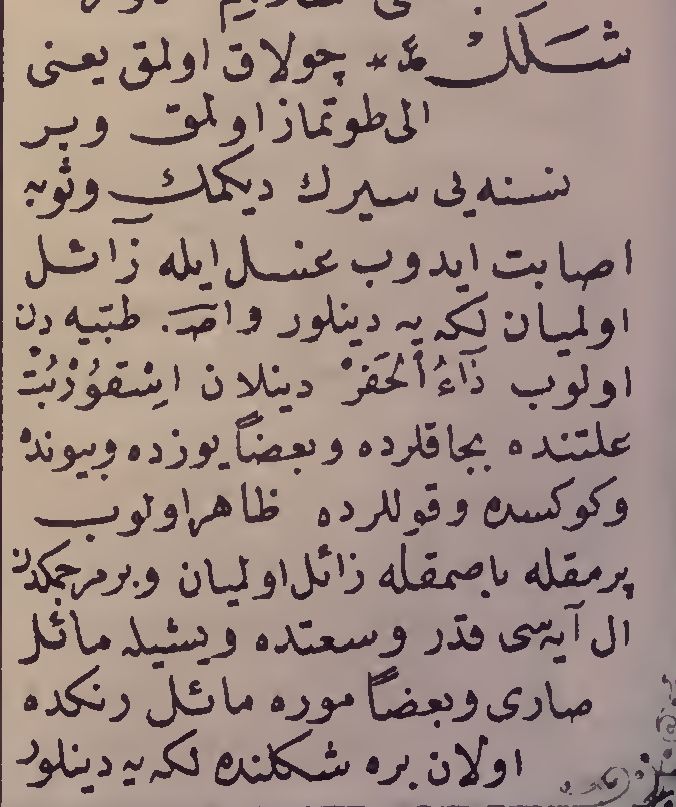 شَلَلْ * چولاق اولمق يعنى
الى طوتماز اولمق وبر
نسنه يى سيرك ديكمك وثوبه
اصابت ايدوب غسل ايله زائل
اولميان لكه يه دينلور و طبّيه دن
اولوب دَآءُ ٱلْحَفَرْ دينلان اِسْقوُرْبُتْ
علتنده بجاقلرده وبعضاً يوزده وبيونده
وكوكسده وقوللرده ظاهر اولوب
پرمقله باصمقله زائل اولميان وبر مرجمكدن
ال آيه سى قدر وسعتده ويشيله مائل
صارى وبعضاً موره مائل رنكده
اولان بره شكلنده لكه يه دينلور